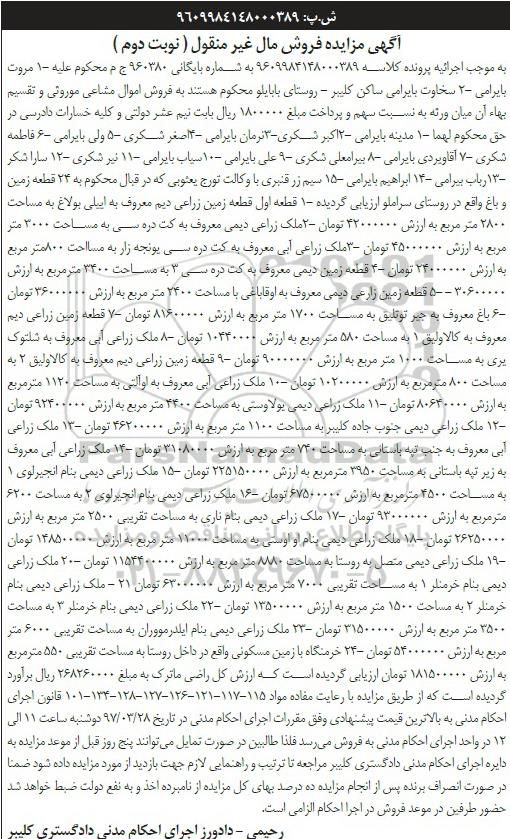 ش.پ: ۹۶۰۹۹۸۴۱۴۸۰۰۰۳۸۹
آگهی مزایده فروش مال غیر منقول ( نوبت دوم )
به موجب اجرائیه پرونده کلاسه ۹۶۰۹۹۸۴۱۴۸۰۰۰۳۸۹ به شماره بایگانی ۹۶۰۳۸۰ ج م محکوم علیه -۱ مروت
بایرامی -۲ سخاوت بایرامی ساکن کلیبر - روستای بابایلو محکوم هستند به فروش اموال مشاعی موروثی و تقسیم
بهاء آن میان ورثه به نسبت سهم و پرداخت مبلغ ۱۸۰۰۰۰۰ ریال بابت نیم عشر دولتی و کلیه خسارات دادرسی در
حق محکوم لهما -۱ مدینه بایرامی -۲اکبر شکری-۳نرمان بایرامی -۴اصغر شکری -۵ ولی بایرامی -۶ فاطمه
شکری -۷ آقاویردی بایرامی -۸ بیرامعلی شکری -۹ علی بایرامی -۱۰سیاب بایرامی -۱۱ نیر شکری -۱۲ سارا شکر
-۱۳رباب بیرامی -۱۴ ابراهیم بایرامی -۱۵ سیم زر قنبری با وکالت تورج یعثوبی که در قبال محکوم به ۲۴ قطعه زمین
و باغ واقع در روستای سراملو ارزیابی گردیده -۱ قطعه اول قطعه زمین زراعی دیم معروف به اییلی بولاغ به مساحت
۲۸۰۰ متر مربع به ارزش ۴۲۰۰۰۰۰۰ تومان -۲ملک زراعی دیمی معروف به کت دره سی به مساحت ۳۰۰۰ متر
مربع به ارزش ۴۵۰۰۰۰۰۰ تومان -۳ملک زراعی آبی معروف به کت دره سی یونجه زار به مسااحت ۸۰۰متر مربع
به ارزش ۲۴۰۰۰۰۰۰ تومان -۴ قطعه زمین دیمی معروف به کت دره سی ۳ به مساحت ۳۴۰۰ مترمربع به ارزش
۳۰۶۰۰۰۰۰ -۵ قطعه زمین زارعی دیمی معروف به اوقاباغی با مساحت ۲۴۰۰ متر مربع به ارزش ۳۶۰۰۰۰۰۰ تومان
-۶ باغ معروف به جیر توتلیق به مساحت ۱۷۰۰ متر مربع به ارزش ۸۱۶۰۰۰۰۰ تومان -۷ قطعه زمین زراعی دیم
معروف به کالاولیق ۱ به مساحت ۵۸۰ متر مربع به ارزش ۱۰۴۴۰۰۰۰ تومان -۸ ملک زراعی آبی معروف به شلتوک
یری به مساحت ۱۰۰۰ متر مربع به ارزش ۹۰۰۰۰۰۰۰ تومان -۹ قطعه زمین زراعی دیم معروف به کالاولیق ۲ به
مساحت ۸۰۰ مترمربع به ارزش ۱۰۲۰۰۰۰۰ تومان -۱۰ ملک زراعی آبی معروف به اوآلتی به مساحت ۱۱۲۰ مترمربع
به ارزش ۸۰۶۴۰۰۰۰ تومان -۱۱ ملک زراعی دیمی یولاوستی به مساحت ۴۴۰۰ متر مربع به ارزش ۹۲۴۰۰۰۰۰ تومان
-۱۲ ملک زراعی دیمی جنوب جاده کلیبر به مساحت ۱۱۰۰ متر مربع به ارزش ۴۶۲۰۰۰۰۰ تومان -۱۳ ملک زراعی
آبی معروف به جنب تپه باستانی به مساحت ۷۴۰ متر مربع به ارزش ۳۱۰۸۰۰۰۰ تومان -۱۴ ملک زراعی آبی معروف
به زیر تپه باستانی به مساحت ۳۹۵۰ مترمربع به ارزش ۲۲۵۱۵۰۰۰۰ تومان -۱۵ ملک زراعی دیمی بنام انجیرلوی ۱
به مساحت ۴۵۰۰ مترمربع به ارزش ۶۷۵۰۰۰۰۰ تومان -۱۶ ملک زراعی دیمی بنام انجیرلوی ۲ به مساحت ۶۲۰۰
مترمربع به ارزش ۹۳۰۰۰۰۰۰ تومان -۱۷ ملک زراعی دیمی بنام ناری به مساحت تقریبی ۲۵۰۰ متر مربع به ارزش
۲۶۲۵۰۰۰۰ تومان -۱۸ ملک زراعی دیمی بنام و اوستی به مساحت ۱۱۰۰۰ متر مربع به ارزش ۱۴۸۵۰۰۰۰۰ تومان
-۱۹ ملک زراعی دیمی متصل به روستا به مساحت ۸۸۸۰ متر مربع به ارزش ۱۱۵۴۴۰۰۰۰ تومان -۲۰ ملک زراعی
دیمی بنام خرمنلر ۱ به مساحت تقریبی ۷۰۰۰ متر مربع به ارزش ۶۳۰۰۰۰۰۰ تومان ۲۱ - ملک زراعی دیمی بنام
خرمنلر ۲ به مساحت ۱۵۰۰ متر مربع به ارزش ۱۳۵۰۰۰۰۰ تومان -۲۲ ملک زراعی دیمی بنام خرمنلر ۳ به مساحت
۳۵۰۰ متر مربع به ارزش ۳۱۵۰۰۰۰۰ تومان -۲۳ ملک زراعی دیمی بنام ایلدرمووران به مساحت تقریبی ۶۰۰۰ متر
مربع به ارزش ۵۴۰۰۰۰۰۰ تومان -۲۴ خرمنگاه با زمین مسکونی واقع در داخل روستا به مساحت تقریبی ۵۵۰ مترمربع
به ارزش ۱۸۱۵۰۰۰۰۰ تومان ارزیابی گردیده است که ارزش کل راضی ماترک به مبلغ ۲۶۸۲۶۰۰۰۰ ریال برآورد
گردیده است که از طریق مزایده با رعایت مفاده مواد ۱۱۵-۱۱۷-۱۲۱-۱۲۶-۱۲۷-۱۲۸-۱۳۴-۱۰۱ قانون اجرای
احکام مدنی به بالاترین قیمت پیشنهادی وفق مقررات اجرای احکام مدنی در تاریخ ۹۷/۰۳/۲۸ دوشنبه ساعت ۱۱ الی
۱۲ در واحد اجرای احکام مدنی به فروش می‌رسد فلذا طالبین در صورت تمایل می‌توانند پنج روز قبل از موعد مزایده به
دایره اجرای احکام مدنی دادگستری کلیبر مراجعه تا ترتیب و راهنمایی لازم جهت بازدید از مورد مزایده داده شود ضمنا
در صورت انصراف برنده پس از انجام مزایده ده درصد بهای کل مزایده از نامبرده اخذ و به نفع دولت ضبط خواهد شد
حضور طرفین در موعد فروش در اجرا احکام الزامی است.
رحیمی - دادورز اجرای احکام مدنی دادگستری کلیبر